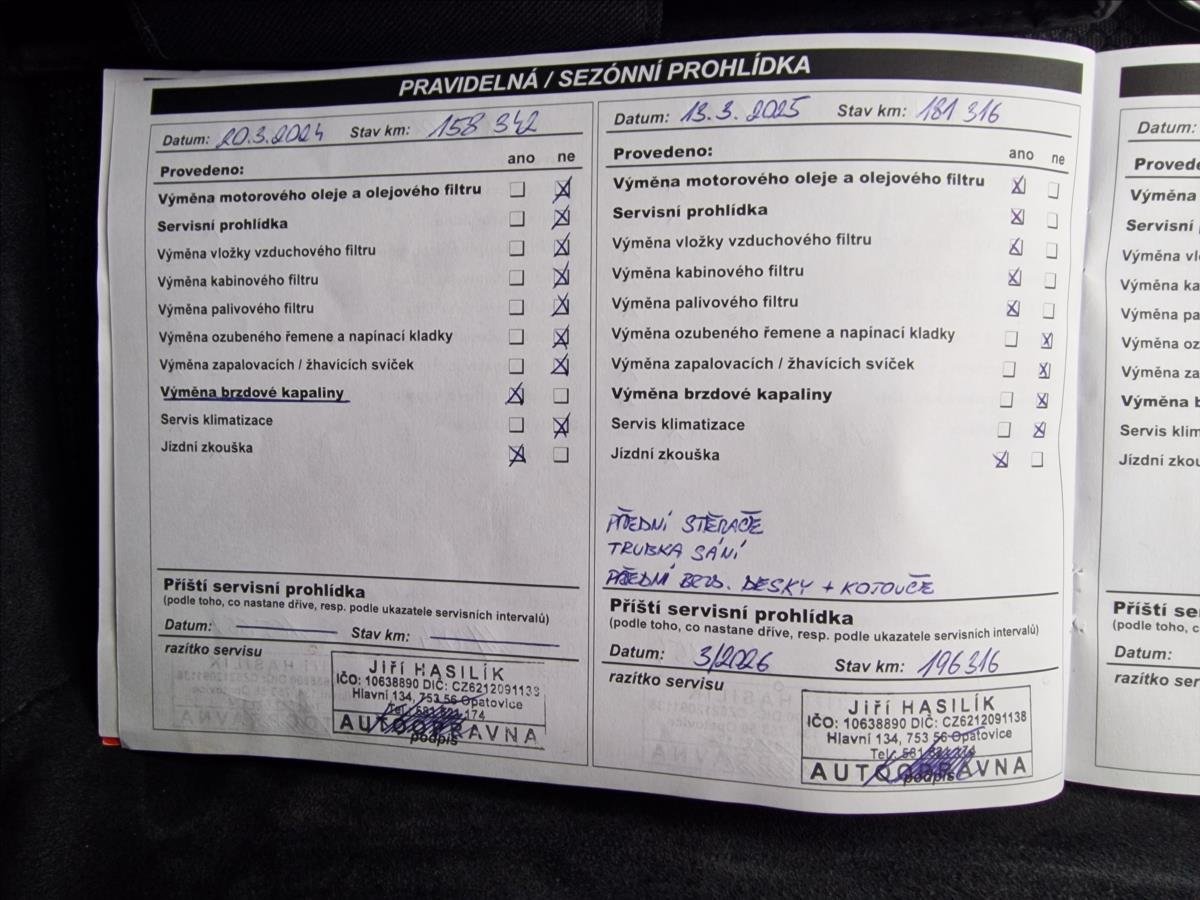 PRAVIDELNÁ / SEZÓNNÍ PROHLÍDKA
Datum: 20.3.2024 Stav km: 158 342
Provedeno: ano ne
Výměna motorového oleje a olejového filtru
Servisní prohlídka
Výměna vložky vzduchového filtru
Výměna kabinového filtru
Výměna palivového filtru
Výměna ozubeného řemene a napínací kladky
Výměna zapalovacích / žhavících svíček
Výměna brzdové kapaliny
Servis klimatizace
Jízdní zkouška
Příští servisní prohlídka
(podle toho, co nastane dříve, resp. podle ukazatele servisních intervalů)
Datum: Stav km:
razítko servisu
JIŘÍ HASILÍK
IČO: 10638890 DIČ: CZ6212091138
Hlavní 134, 753 56 Opatovice
Tel.: 581 174
AUTOOPRAVNA
podpis
Datum: 13.3.2025 Stav km: 181 316
Provedeno: ano ne
Výměna motorového oleje a olejového filtru
Servisní prohlídka
Výměna vložky vzduchového filtru
Výměna kabinového filtru
Výměna palivového filtru
Výměna ozubeného řemene a napínací kladky
Výměna zapalovacích / žhavících svíček
Výměna brzdové kapaliny
Servis klimatizace
Jízdní zkouška
PŘEDNÍ STĚRAČE
TRUBKA SÁNÍ
PŘEDNÍ BRZD. DESKY + KOTOUČE
Příští servisní prohlídka
(podle toho, co nastane dříve, resp. podle ukazatele servisních intervalů)
Datum: 3/2026 Stav km: 196316
razítko servisu
JIŘÍ HASILÍK
IČO: 10638890 DIČ: CZ6212091138
Hlavní 134, 753 56 Opatovice
Tel.: 581
AUTOOPRAVNA
podpis
Datum:
Provede
Výměna
Servisní
Výměna vl
Výměna ka
Výměna pa
Výměna oz
Výměna za
Výměna b
Servis klim
Jízdní zko
Příští se
(podle toho, c
Datum:
razítko se